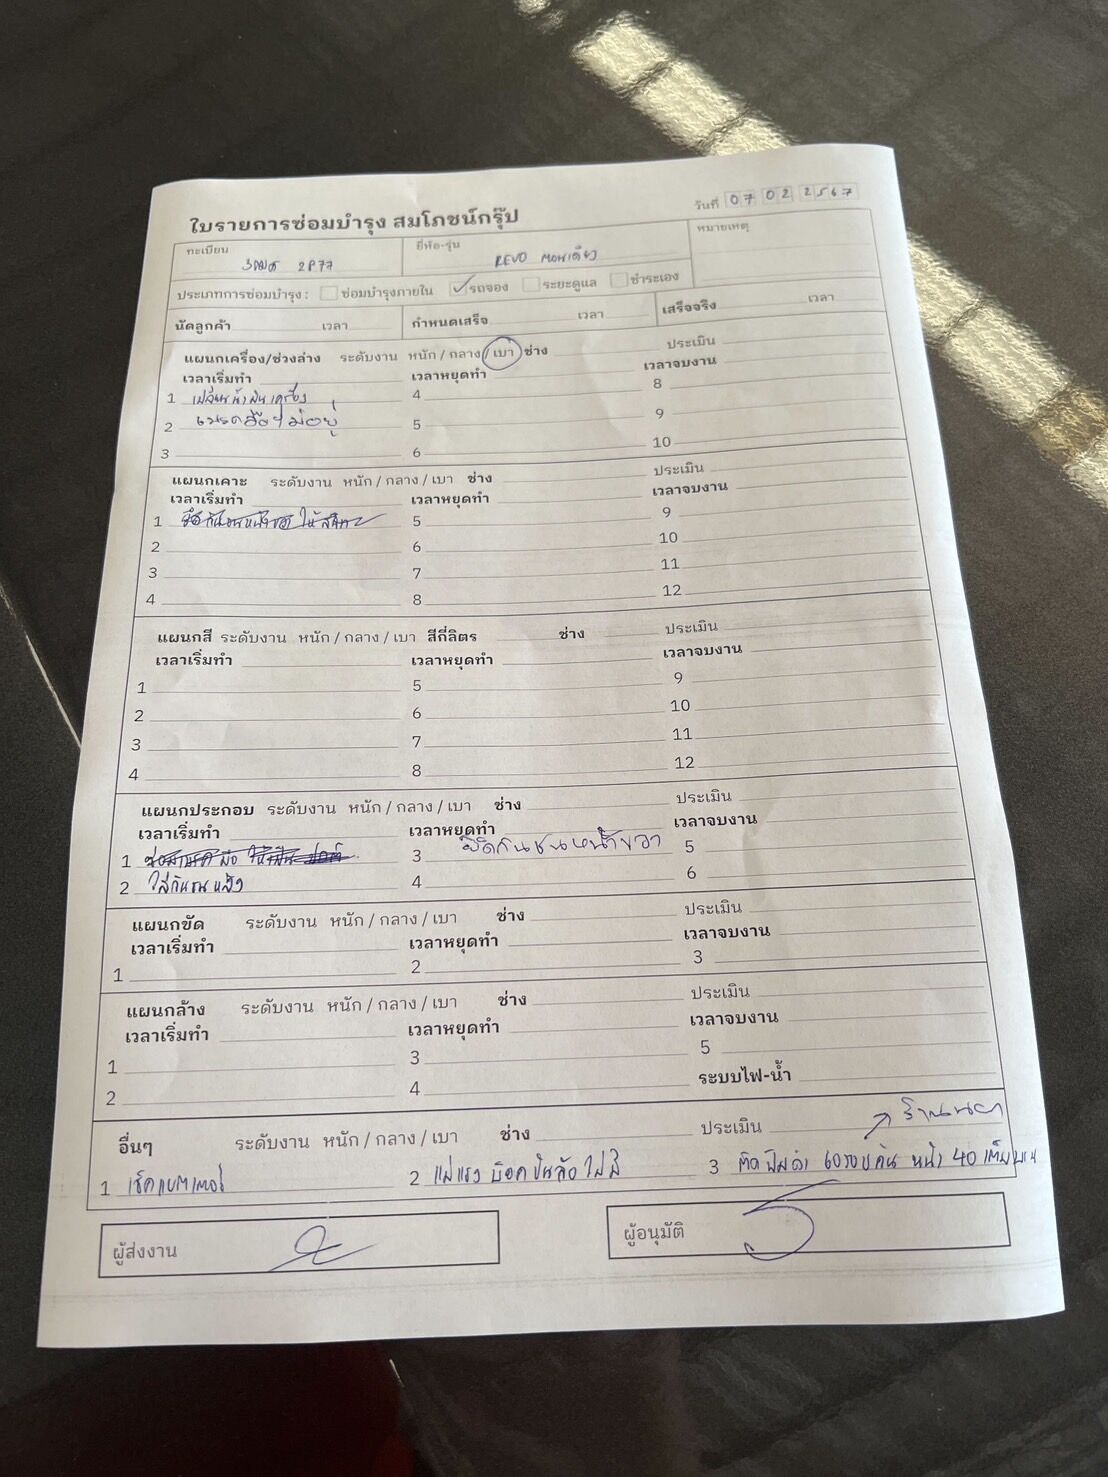 ใบรายการซ่อมบำรุง สมโภชน์กรุ๊ป
วันที่ 07 02 2567
ทะเบียน 2P77
ยี่ห้อ-รุ่น REVO ตอนเดียว
หมายเหตุ
ประเภทการซ่อมบำรุง : ซ่อมบำรุงภายใน รถจอง ระยะดูแล ชำระเอง
นัดลูกค้า เวลา กำหนดเสร็จ เวลา เสร็จจริง เวลา
แผนกเครื่อง/ช่วงล่าง ระดับงาน หนัก / กลาง / เบา ช่าง ประเมิน
เวลาเริ่มทำ เวลาหยุดทำ เวลาจบงาน
1 เปลี่ยนน้ำมันเครื่อง 4 8
2 เบรคมือไม่อยู่ 5 9
3 6 10
แผนกเคาะ ระดับงาน หนัก / กลาง / เบา ช่าง ประเมิน
เวลาเริ่มทำ เวลาหยุดทำ เวลาจบงาน
1 5 9
2 6 10
3 7 11
4 8 12
แผนกสี ระดับงาน หนัก / กลาง / เบา สีกี่ลิตร ช่าง ประเมิน
เวลาเริ่มทำ เวลาหยุดทำ เวลาจบงาน
1 5 9
2 6 10
3 7 11
4 8 12
แผนกประกอบ ระดับงาน หนัก / กลาง / เบา ช่าง ประเมิน
เวลาเริ่มทำ เวลาหยุดทำ เวลาจบงาน
1 3 ยึดกันชนหน้าขวา 5
2 ใส่กันชนหลัง 4 6
แผนกขัด ระดับงาน หนัก / กลาง / เบา ช่าง ประเมิน
เวลาเริ่มทำ เวลาหยุดทำ เวลาจบงาน
1 2 3
แผนกล้าง ระดับงาน หนัก / กลาง / เบา ช่าง ประเมิน
เวลาเริ่มทำ เวลาหยุดทำ เวลาจบงาน
1 3 5
2 4 ระบบไฟ-น้ำ
อื่นๆ ระดับงาน หนัก / กลาง / เบา ช่าง ประเมิน
1 เช็คแบตเตอรี่ 2 แม่แรง บล็อคขันล้อ ไม่มี 3 ติดฟิล์มดำ 60รอบคัน หน้า 40 เต็มบาน
ผู้ส่งงาน
ผู้อนุมัติ